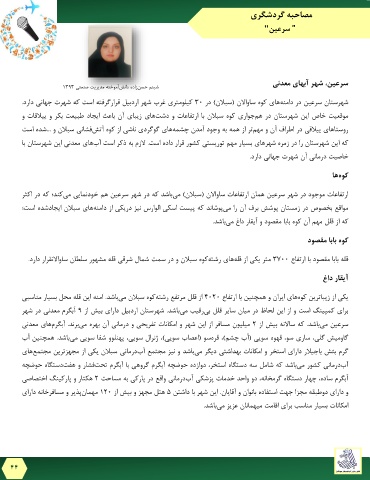 مصاحبه گردشگری
"سرعین"
شبنم حسن‌زاده، دانش‌آموخته مدیریت صنعتی ۱۳۹۳
سرعین، شهر آبهای معدنی
شهرستان سرعین در دامنه‌های کوه ساوالان (سبلان) در ۳۰ کیلومتری غرب شهر اردبیل قرارگرفته است که شهرت جهانی دارد.
موقعیت خاص این شهرستان در هم‌جواری کوه سبلان با ارتفاعات و دشت‌های زیبای آن باعث ایجاد طبیعت بکر و ییلاقات و
روستاهای ییلاقی در اطراف آن و مهم‌تر از همه به وجود آمدن چشمه‌های گوگردی ناشی از کوه آتش‌فشانی سبلان و ...شده است
که این شهرستان را در زمره شهرهای بسیار مهم توریستی کشور قرار داده است. لازم به ذکر است آب‌های معدنی این شهرستان با
خاصیت درمانی آن شهرت جهانی دارد.
کوه‌ها
ارتفاعات موجود در شهر سرعین همان ارتفاعات ساوالان (سبلان) می‌باشد که در شهر سرعین هم خودنمایی می‌کند؛ که در اکثر
مواقع بخصوص در زمستان پوشش برف آن را می‌پوشاند که پیست اسکی الوارس نیز در یکی از دامنه‌های سبلان ایجادشده است؛
که از قلل مهم آن کوه بابا مقصود و آیقار داغ می‌باشد.
کوه بابا مقصود
قله بابا مقصود با ارتفاع ۳۷۰۰ متر یکی از قله‌های رشته‌کوه سبلان و در سمت شمال شرقی قله مشهور سلطان ساوالانقرار دارد.
آیقار داغ
یکی از زیباترین کوه‌های ایران و همچنین با ارتفاع ۴۰۲۰ از قلل مرتفع رشته‌کوه سبلان می‌باشد. امنه این قله محل بسیار مناسبی
برای کمپینگ است و از این لحاظ در میان سایر قلل بی‌رقیب می‌باشد. شهرستان اردبیل دارای بیش از ۹ آبگرم معدنی در شهر
سرعین می‌باشد. که سالانه بیش از ۲ میلیون مسافر از این شهر و امکانات تفریحی و درمانی آن بهره می‌برند. آبگرم‌های معدنی
گاومیش گلی، ساری سو، قهوه سویی (آب چشم)، قره‌سو (اعصاب سویی)، ژنرال سویی، پهنلوو شفا سویی می‌باشد. همچنین آب
گرم بتش باجیلار دارای استخر و امکانات بهداشتی دیگر می‌باشد و نیز مجتمع آب‌درمانی سبلان یکی از مجهزترین مجتمع‌های
آب‌درمانی کشور می‌باشد که شامل سه دستگاه استخر، دوازده حوضچه آبگرم گروهی با آبگرم تحت‌فشار و هفت‌دستگاه حوضچه
آبگرم ساده، چهار دستگاه گرمخانه، دو واحد خدمات پزشکی آب‌درمانی واقع در پارکی به مساحت ۲ هکتار و پارکینگ اختصاصی
و دارای دوطبقه مجزا جهت استفاده بانوان و آقایان. این شهر با داشتن ۵ هتل مجهز و بیش از ۱۲۰ مهمان‌پذیر و مسافرخانه دارای
امکانات بسیار مناسب برای اقامت میهمانان عزیز می‌باشد.
۴۴